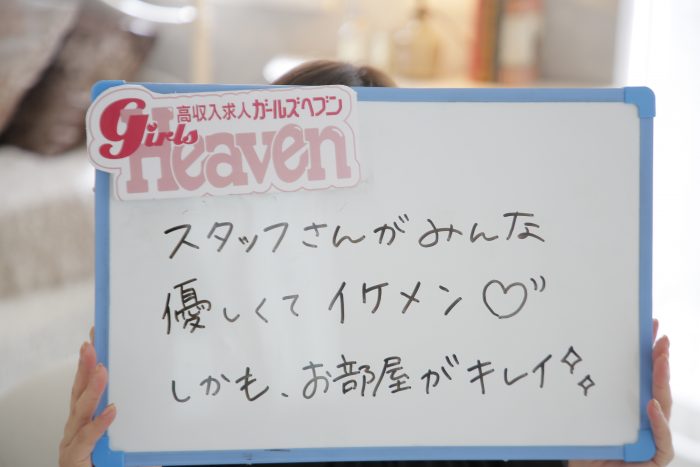 高収入求人ガールズヘブン
Girls
Heaven
スタッフさんがみんな
優しくてイケメン♡
しかも、お部屋がキレイ